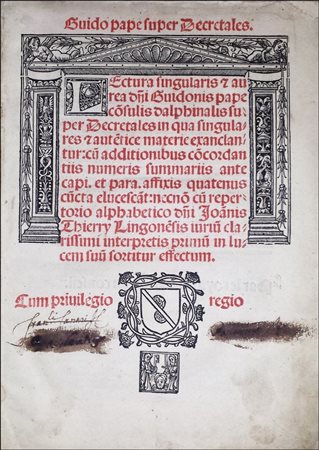 Guido pape super Decretales.
Lectura singularis & au
rea dñi Guidonis pape
cõsulis dalphinalis su
per Decretales in qua singula
res & autẽtice materie exanclan
tur: cũ additionibus cõcordan
tiis numeris summariis ante
capi. et para. affixis quatenus
cũcta elucescãt: necnõ cũ reper
torio alphabetico dñi Joãnis
Thierry Lingonẽsis iuriũ cla
rissimi interpretis primũ in lu
cem suũ sortitur effectum.
Cum priuilegio regio